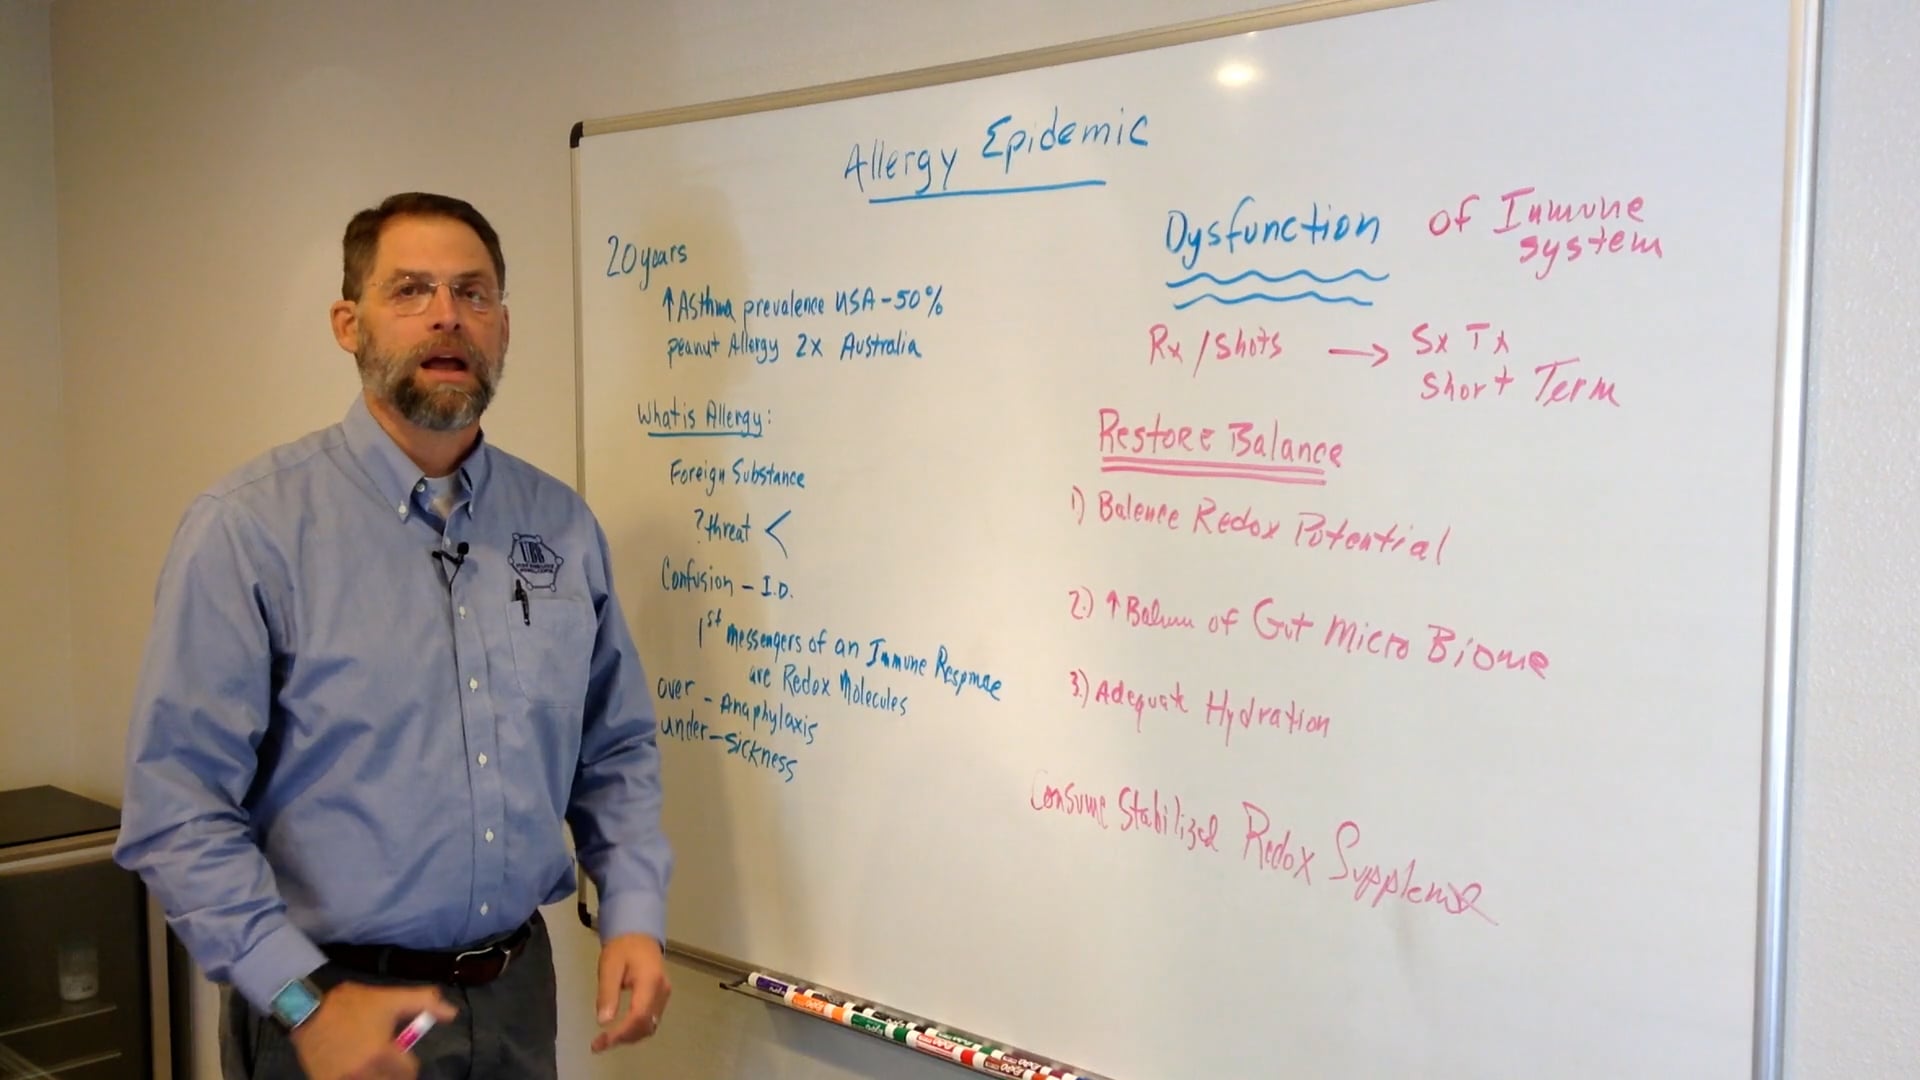 Allergy Epidemic
20 years
↑ Asthma prevalence USA - 50%
peanut Allergy 2x Australia
What is Allergy:
Foreign Substance
? threat <
Confusion - I.D.
1st messengers of an Immune Response
are Redox Molecules
over - Anaphylaxis
under - sickness
Dysfunction of Immune
system
Rx / Shots → Sx Tx
Short Term
Restore Balance
1) Balence Redox Potential
2.) ↑ of Gut Micro Biome
3.) Adequate Hydration
Consume Stabilized Redox
UBC